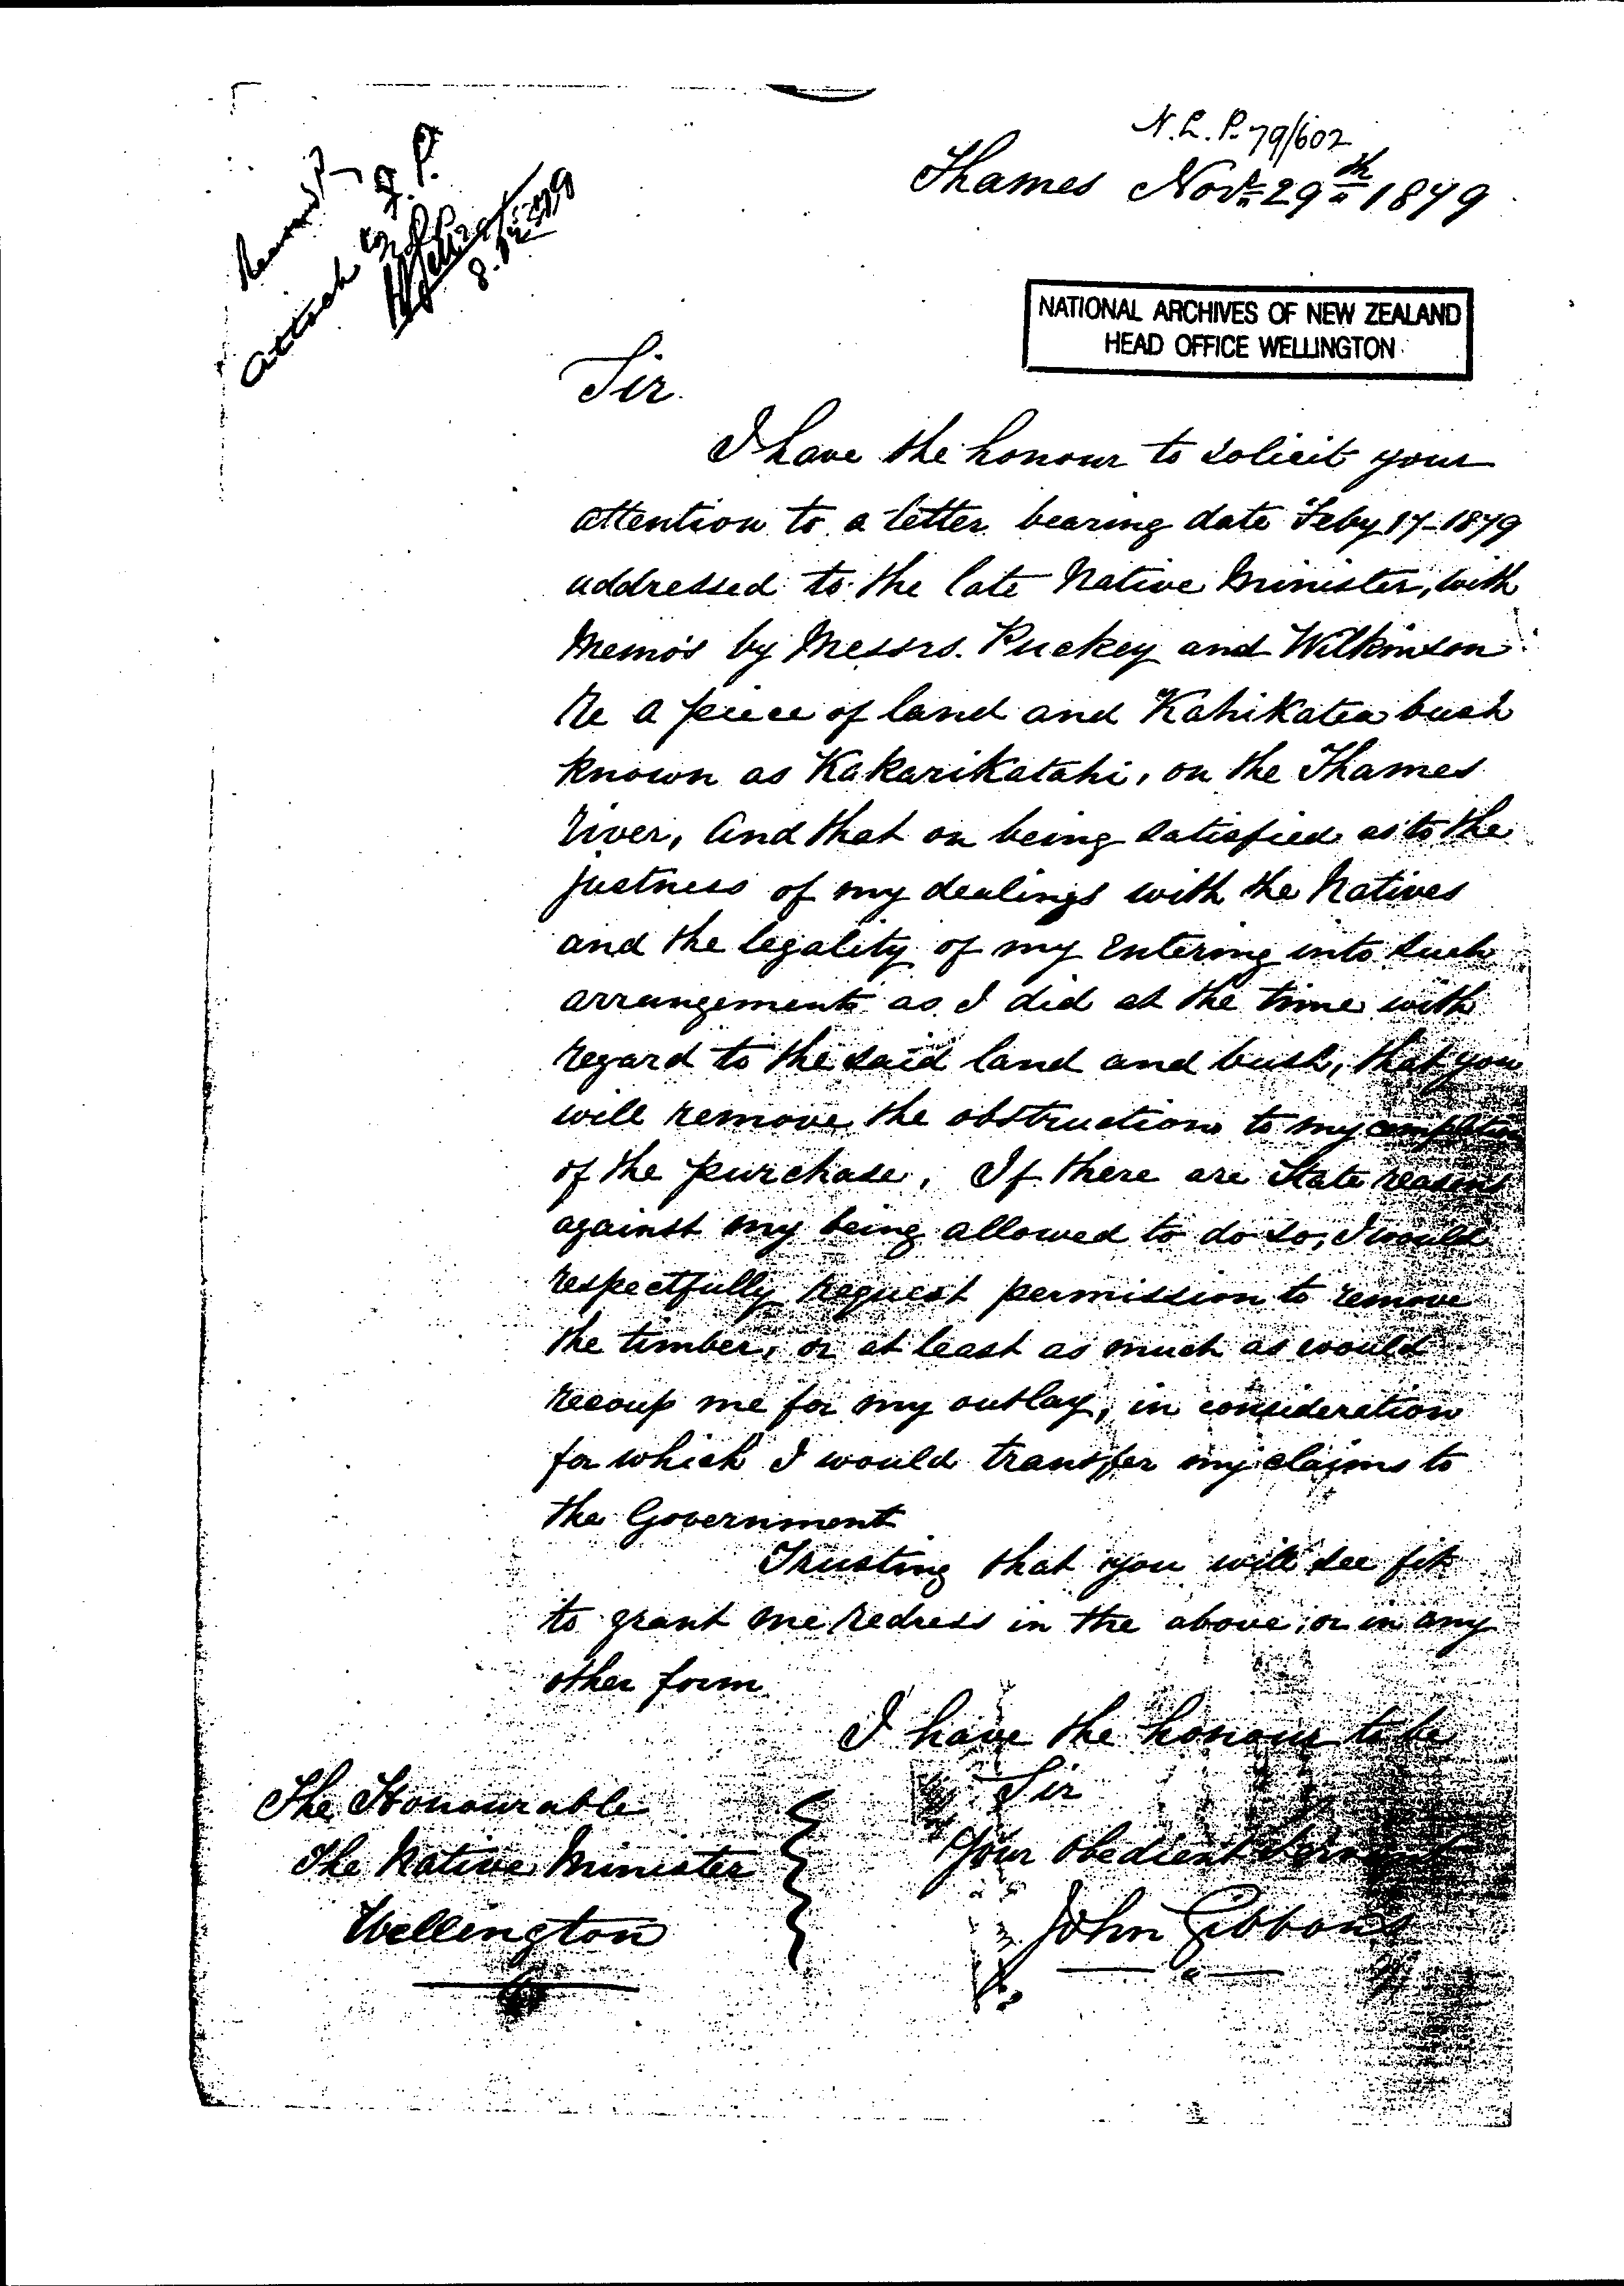 N.L.P. 79/602
Thames Novr. 29th 1879
Attach
8.12.79
NATIONAL ARCHIVES OF NEW ZEALAND
HEAD OFFICE WELLINGTON
Sir.
I have the honour to solicit your
attention to a letter bearing date Feby 17-1879
addressed to the late Native Minister, with
Memo's by Messrs. Puckey and Wilkinson
re a piece of land and Kahikatea bush
known as Kakarikatahi, on the Thames
River, And that on being satisfied as to the
justness of my dealings with the Natives
and the legality of my entering into such
arrangements as I did at the time with
regard to the said land and bush, that you
will remove the obstructions to my completion
of the purchase. If there are State reasons
against my being allowed to do so, I would
respectfully request permission to remove
the timber, or at least as much as would
recoup me for my outlay, in consideration
for which I would transfer my claims to
the Government
Trusting that you will see fit
to grant me redress in the above, or in any
other form
I have the honour to be
Sir
Your obedient Servant
John Gibbons
The Honourable
The Native Minister
Wellington